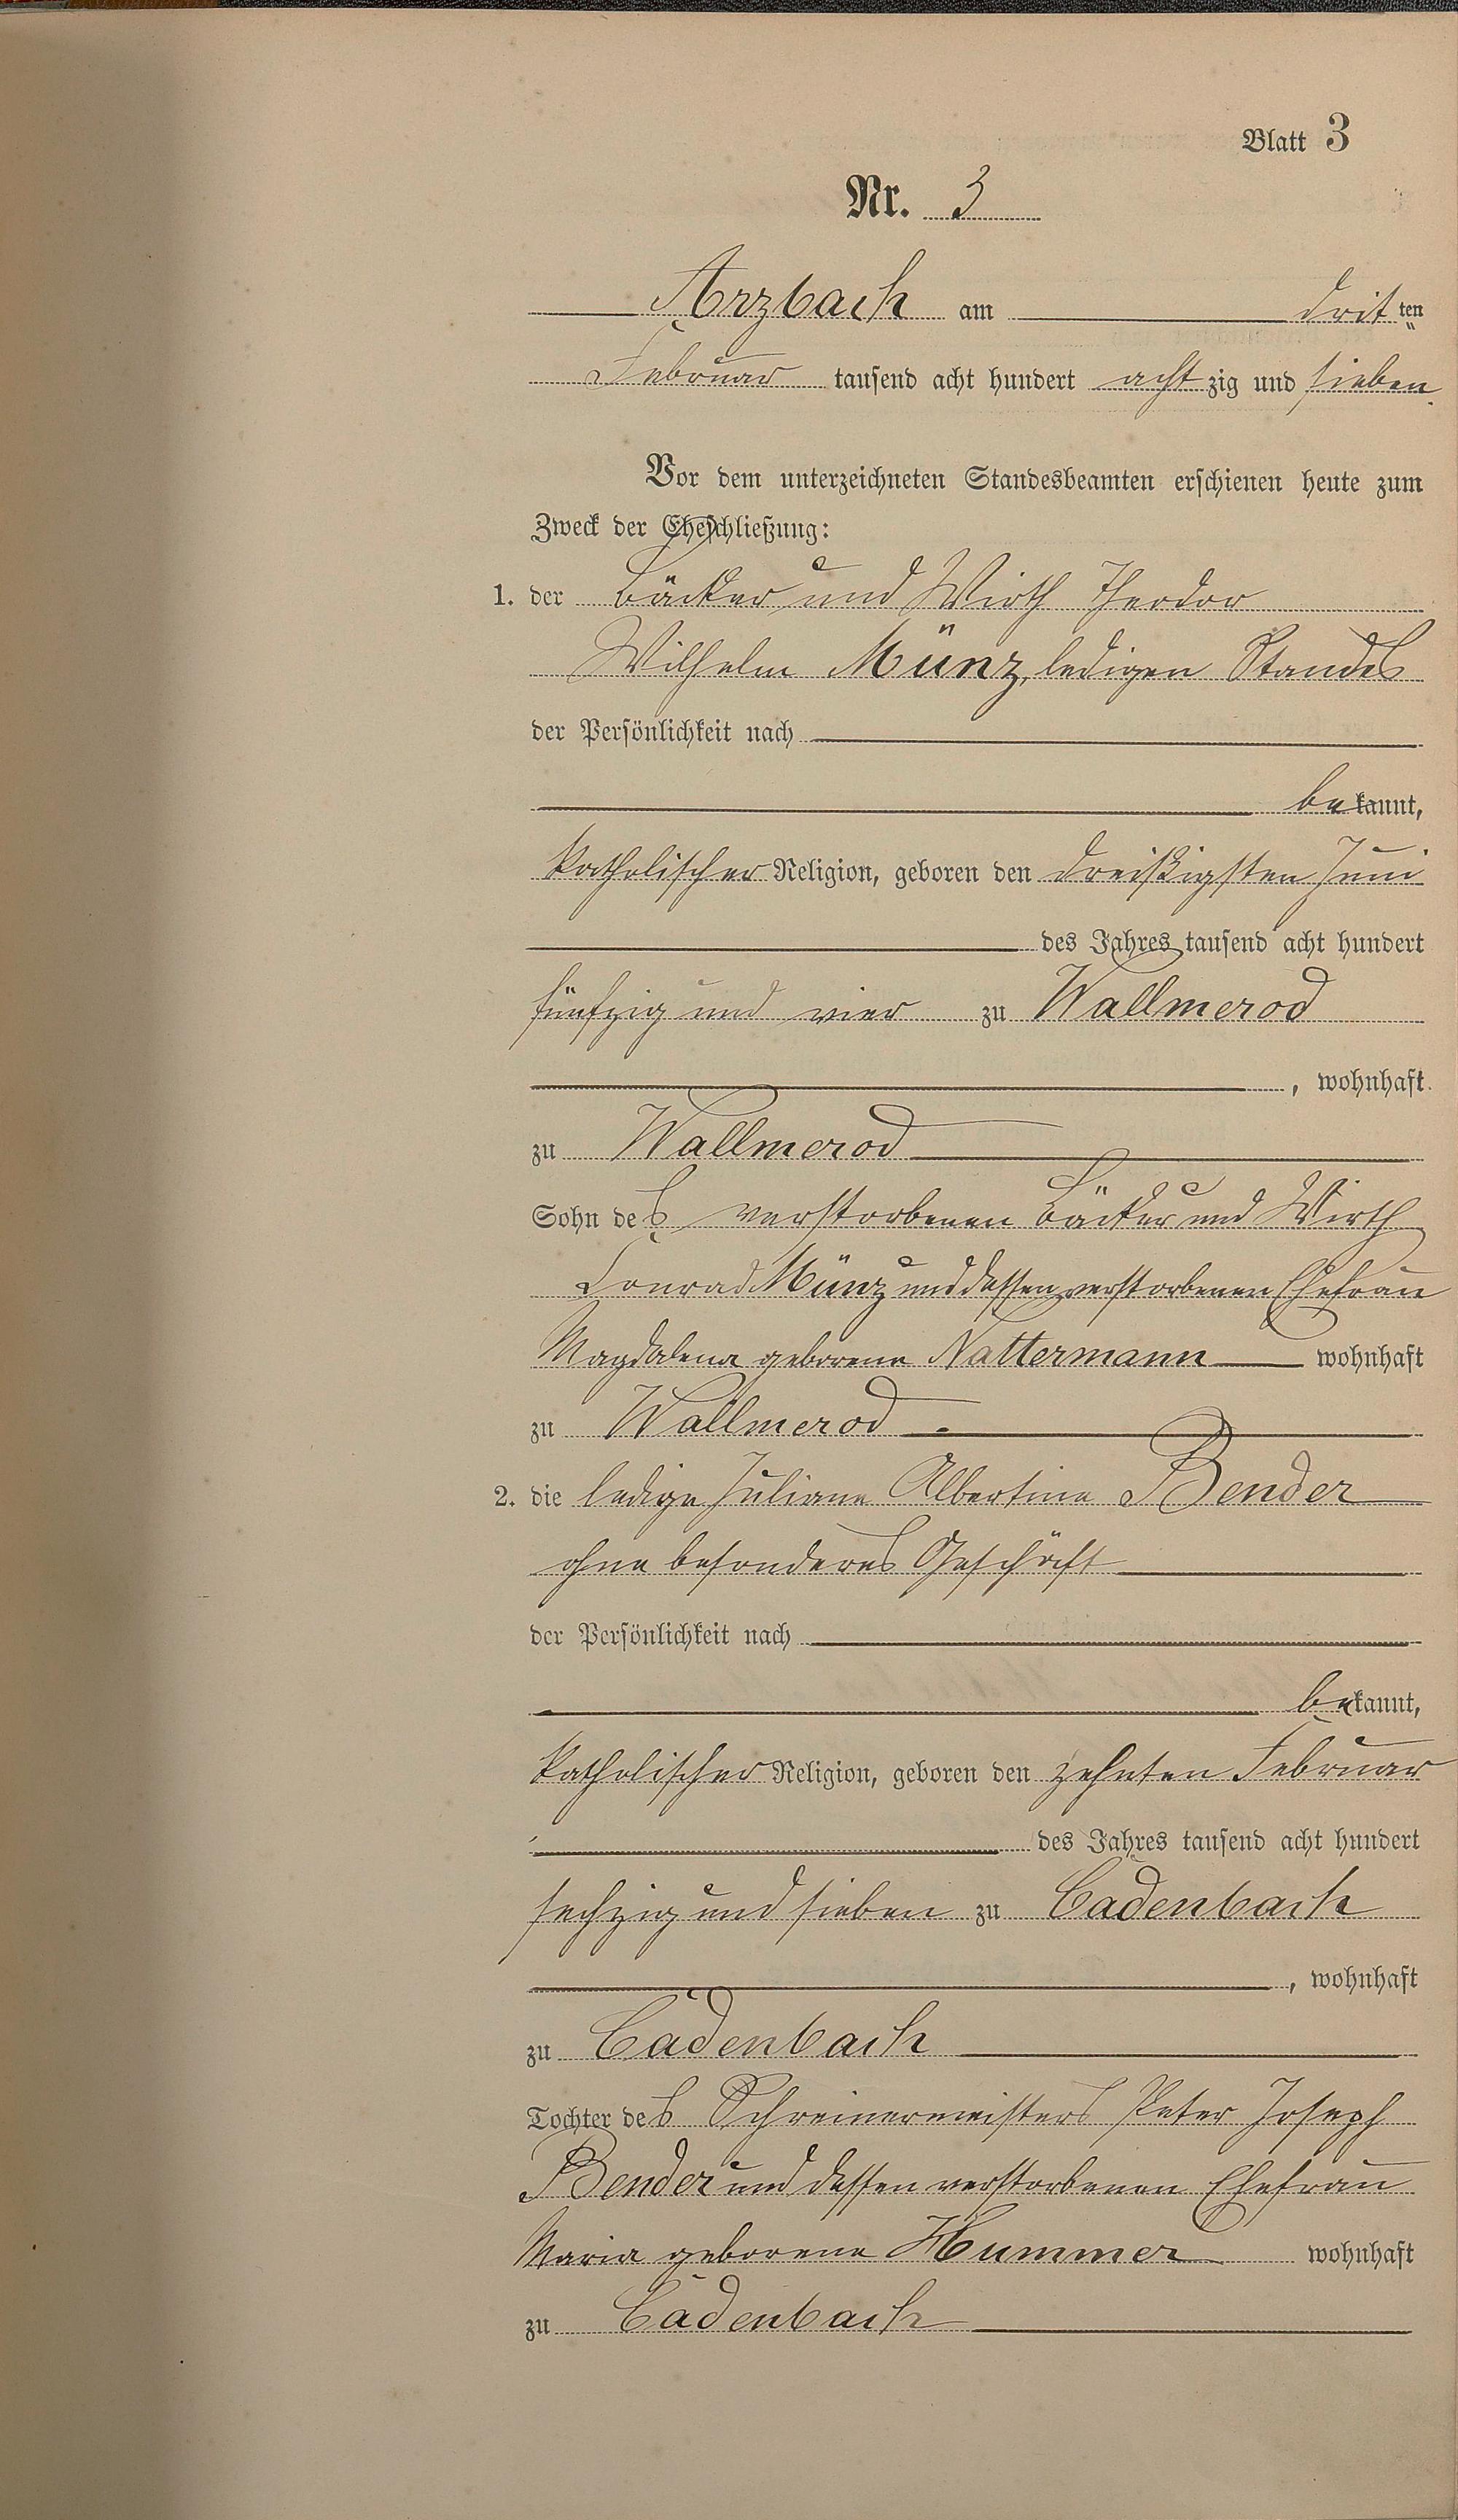 Blatt 3
Nr. 3
Arzbach am dritten
Februar tausend acht hundert achtzig und sieben
Vor dem unterzeichneten Standesbeamten erschienen heute zum
Zweck der Eheschließung:
1. der Bäcker und Wirth Theodor
Wilhelm Münz, ledigen Standes
der Persönlichkeit nach
bekannt,
katholischer Religion, geboren den dreißigsten Juni
des Jahres tausend acht hundert
fünfzig und vier zu Wallmerod
, wohnhaft
zu Wallmerod
Sohn des verstorbenen Bäcker und Wirth
Conrad Münz und dessen verstorbenen Ehefrau
Magdalena geborene Nattermann wohnhaft
zu Wallmerod
2. die ledige Juliane Albertine Bender
ohne besonderes Geschäft
der Persönlichkeit nach
bekannt,
katholischer Religion, geboren den zehnten Februar
des Jahres tausend acht hundert
sechzig und sieben zu Cadenbach
, wohnhaft
zu Cadenbach
Tochter des Schreinermeisters Peter Joseph
Bender und dessen verstorbenen Ehefrau
Maria geborene Hummer wohnhaft
zu Cadenbach